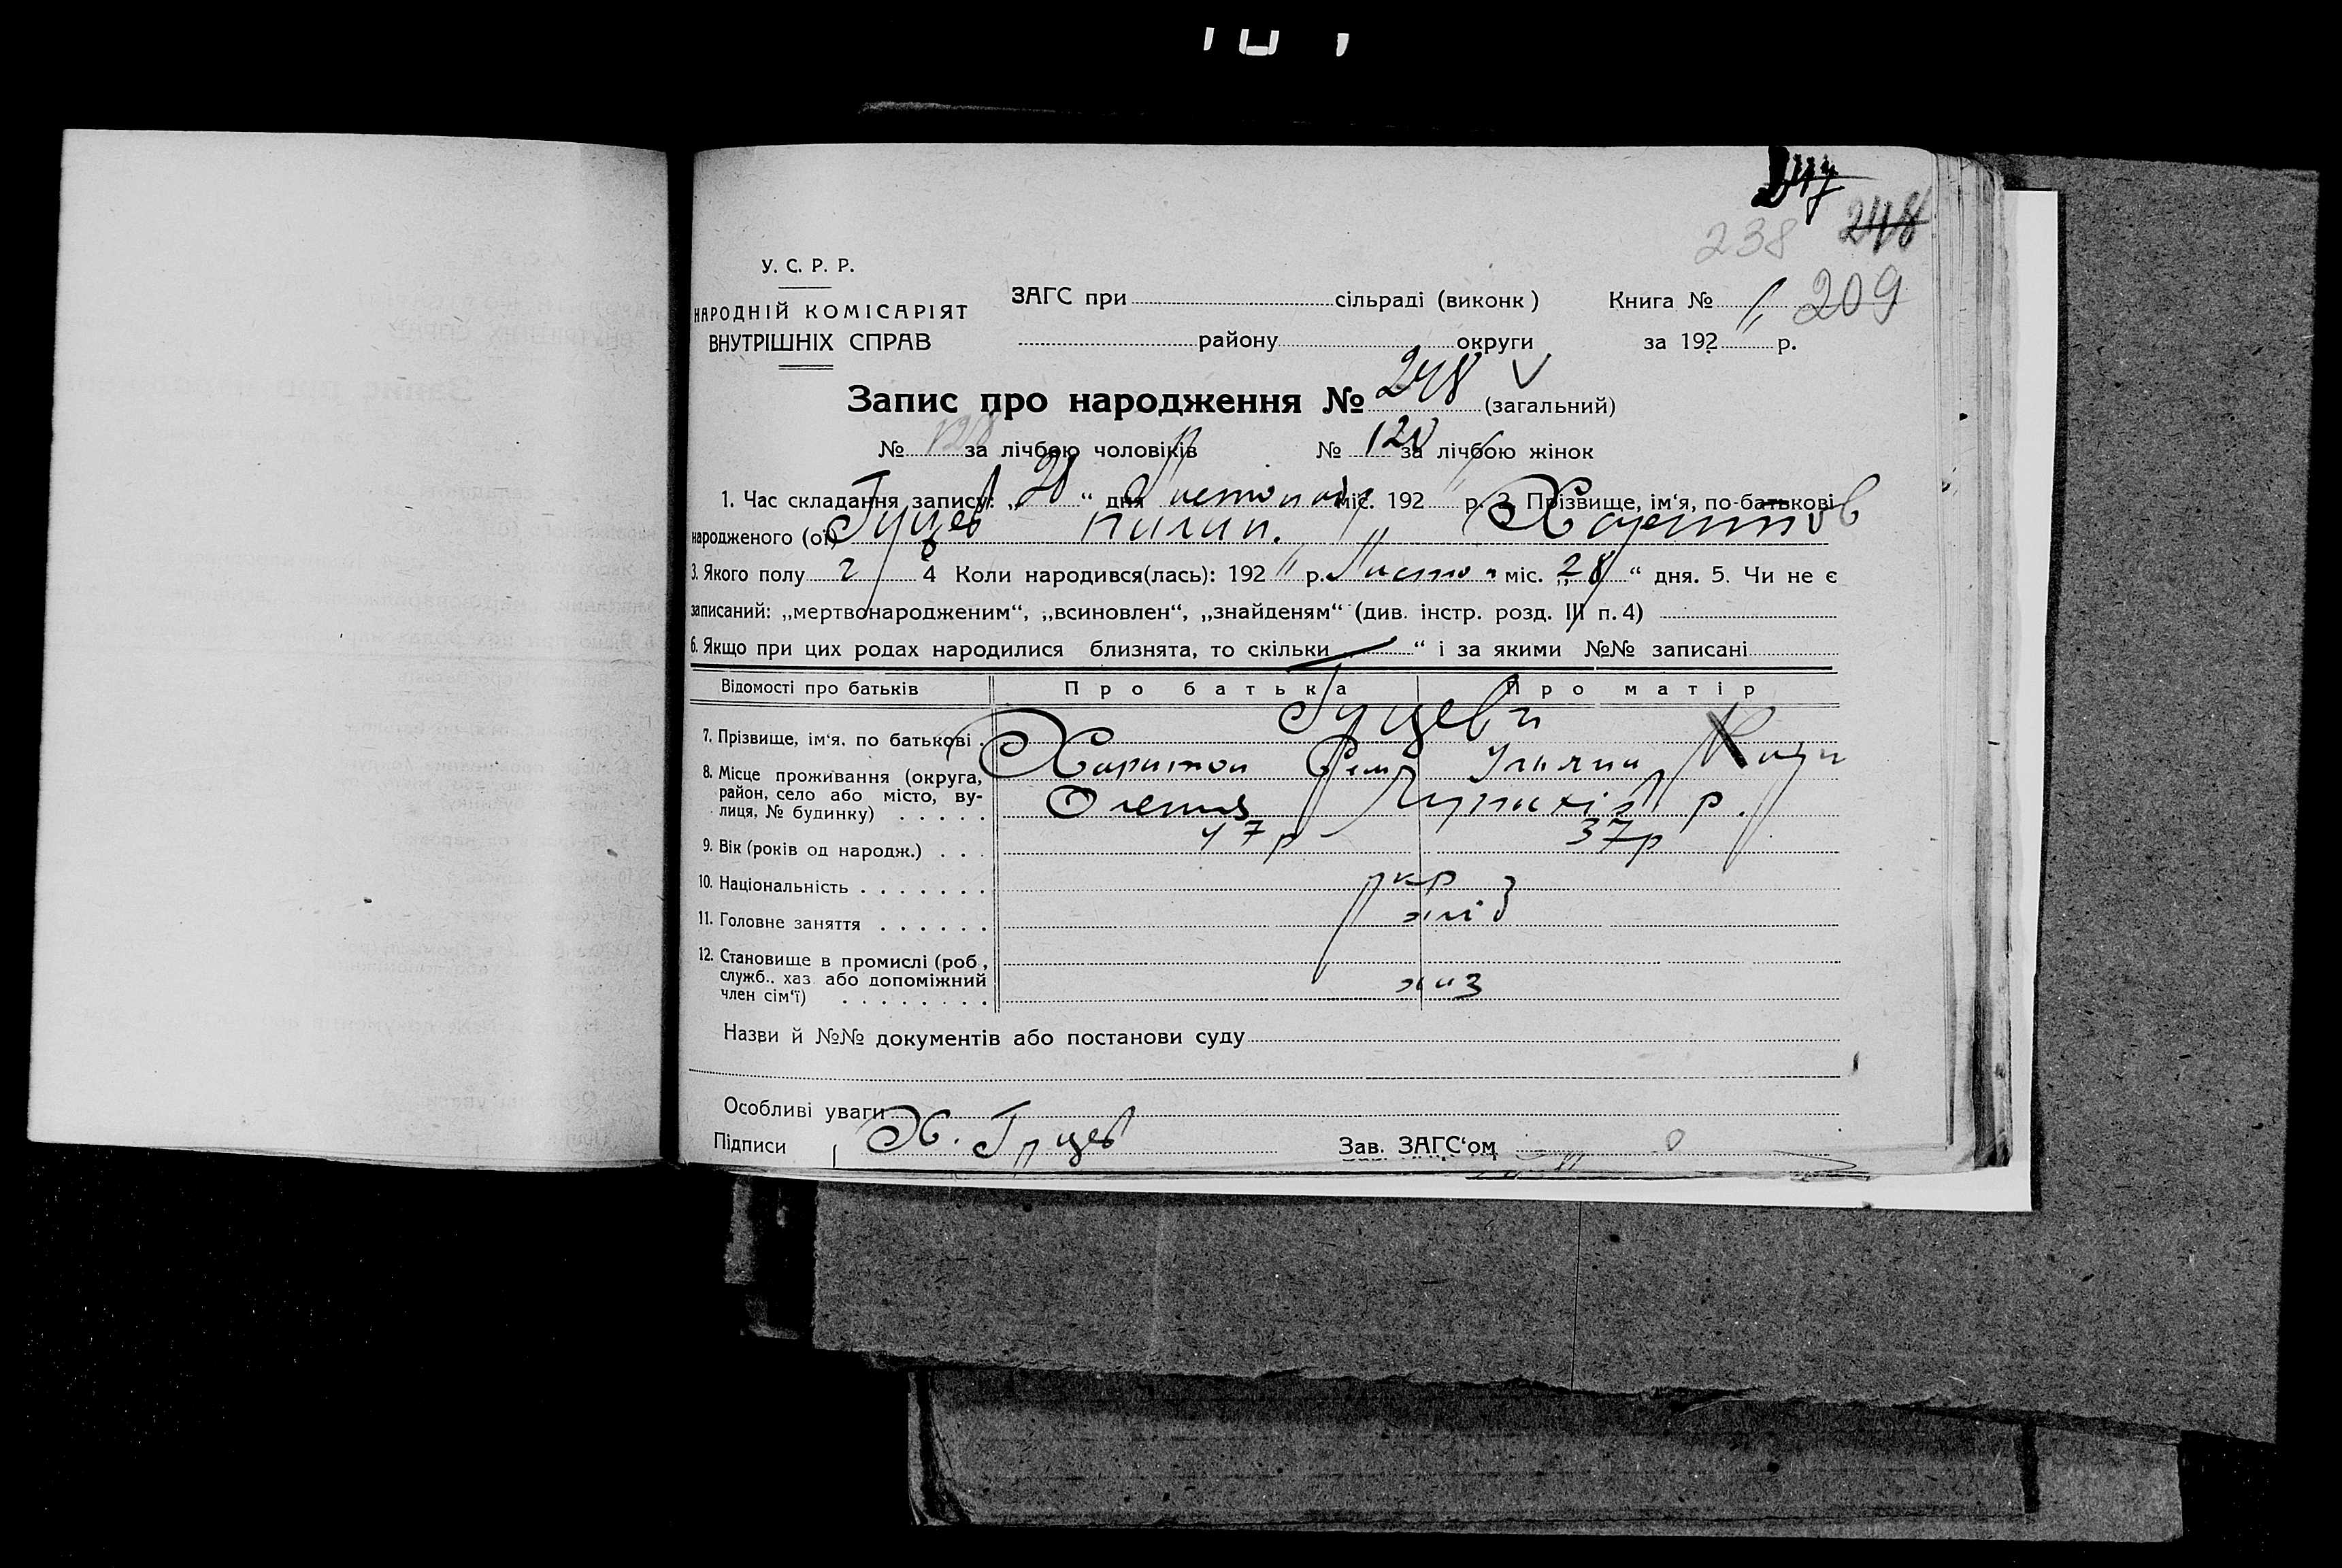 238 248
У. С. Р. Р.
НАРОДНІЙ КОМІСАРІЯТ
ВНУТРІШНІХ СПРАВ
ЗАГС при сільраді (виконк)
Книга № 209
району округи за 192 р.
Запис про народження № 248 (загальний)
№ 128 за лічбою чоловіків № 120 за лічбою жінок
1. Час складання запису: „ “ дня Листопад міс. 192 р. 2. Прізвище, ім'я, по-батькові
народженого (ої) Гуцев Харитов
3. Якого полу ч 4 Коли народився(лась): 192 р. Листо міс. „28“ дня. 5. Чи не є
записаний: „мертвонародженим“, „всиновлен“, „знайденям“ (див. інстр. розд. III п. 4)
6. Якщо при цих родах народилися близнята, то скільки “ і за якими №№ записані
Відомості про батьків Про батька Про матір
Гуцеви
7. Прізвище, ім'я, по батькові Харитон Уляна
8. Місце проживання (округа, район, село або місто, ву-
лиця, № будинку) р.
9. Вік (років од народж.) 47 р 37р
10. Національність укр
11. Головне заняття хліб
12. Становище в промислі (роб.,
служб., хаз. або допоміжний
член сім'ї) хаз
Назви й №№ документів або постанови суду
Особливі уваги
Підписи Х. Гуцев Зав. ЗАГС'ом